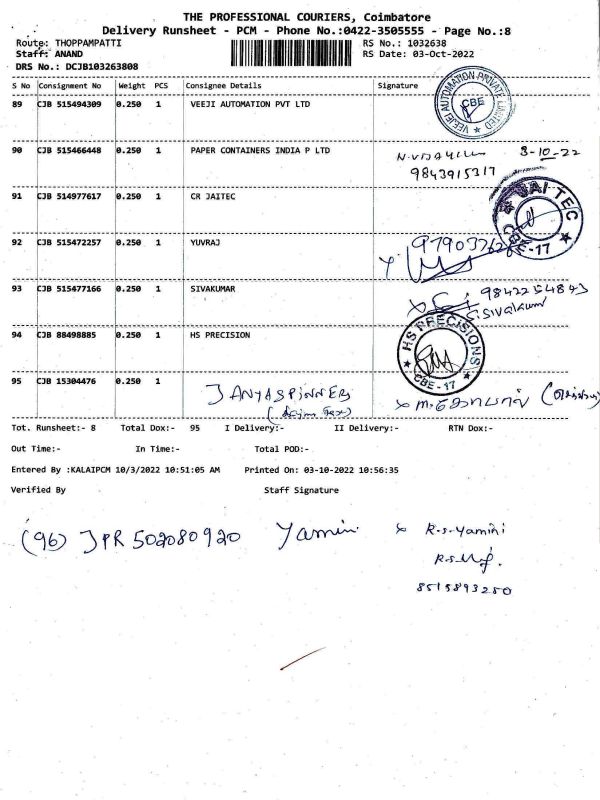 THE PROFESSIONAL COURIERS, Coimbatore
Delivery Runsheet - PCM - Phone No.:0422-3505555 - Page No.:8
Route: THOPPAMPATTI RS No.: 1032638
Staff: ANAND RS Date: 03-Oct-2022
DRS No.: DCJB103263808
S No Consignment No Weight PCS Consignee Details Signature
89 CJB 515494309 0.250 1 VEEJI AUTOMATION PVT LTD
VEEJEI AUTOMATION PRIVATE LIMITED CBE
90 CJB 515466448 0.250 1 PAPER CONTAINERS INDIA P LTD 3-10-22
9843915317
91 CJB 514977617 0.250 1 CR JAITEC
CBE-17
92 CJB 515472257 0.250 1 YUVRAJ
93 CJB 515477166 0.250 1 SIVAKUMAR 9842254843
S.Sivakumar
94 CJB 88498885 0.250 1 HS PRECISION
HS PRECISIONS CBE-17
95 CJB 15304476 0.250 1 JANYASPINNERS
Tot. Runsheet:- 8 Total Dox:- 95 I Delivery:- II Delivery:- RTN Dox:-
Out Time:- In Time:- Total POD:-
Entered By :KALAIPCM 10/3/2022 10:51:05 AM Printed On: 03-10-2022 10:56:35
Verified By Staff Signature
(96) JPR 502080920 Yamini x R.S.Yamini
8515893250